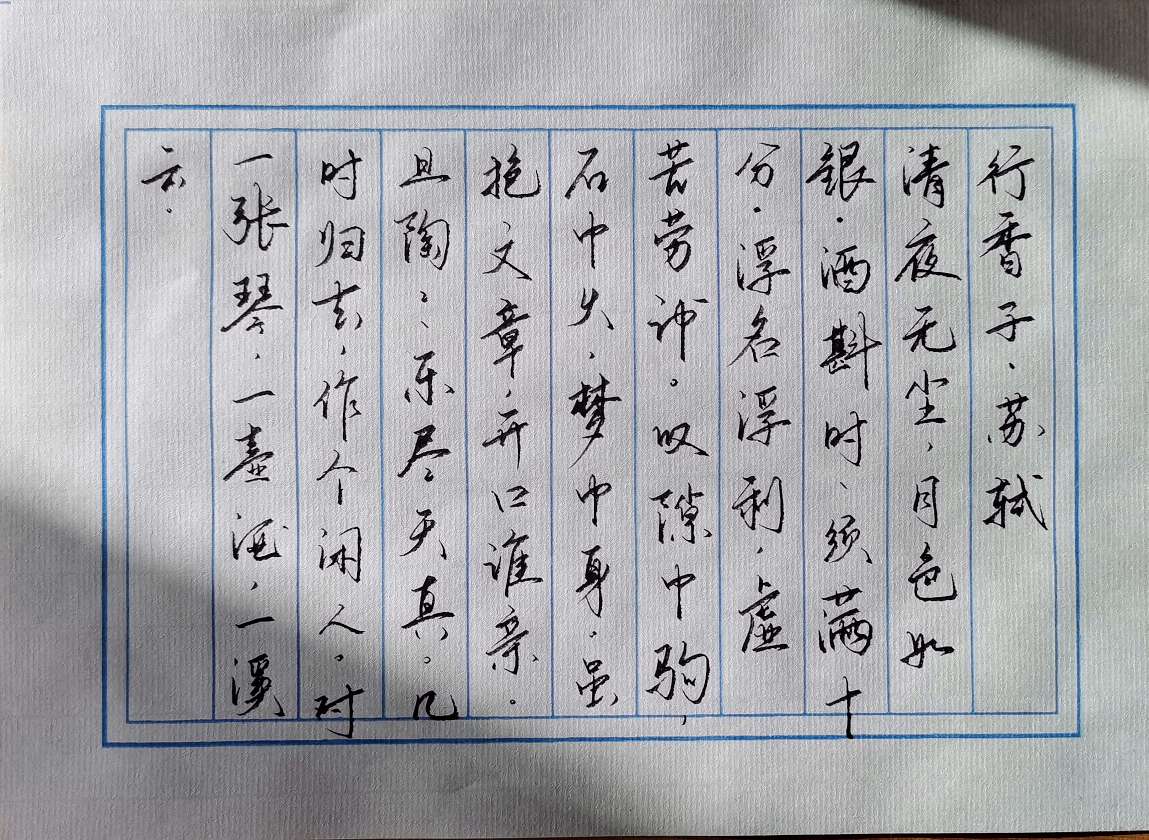 行香子、苏轼
清夜无尘，月色如
銀．酒斟时、须满十
分．浮名浮利，虚
苦劳神。叹隙中驹，
石中火，梦中身．虽
抱文章，开口谁亲．
且陶＝、乐尽天真。几
时归去，作个闲人．对
一张琴，一壶酒，一溪
云．